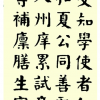 文知學使者
和夏公同善
入州庠累試
等補廩膳生